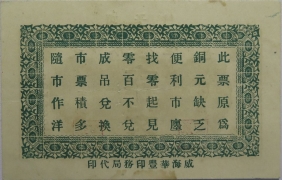 此票原為
銅元缺乏
便利市廛
找零起見
零百不兌
成吊兌換
市票積多
隨市作洋
威海華豐印務局代印